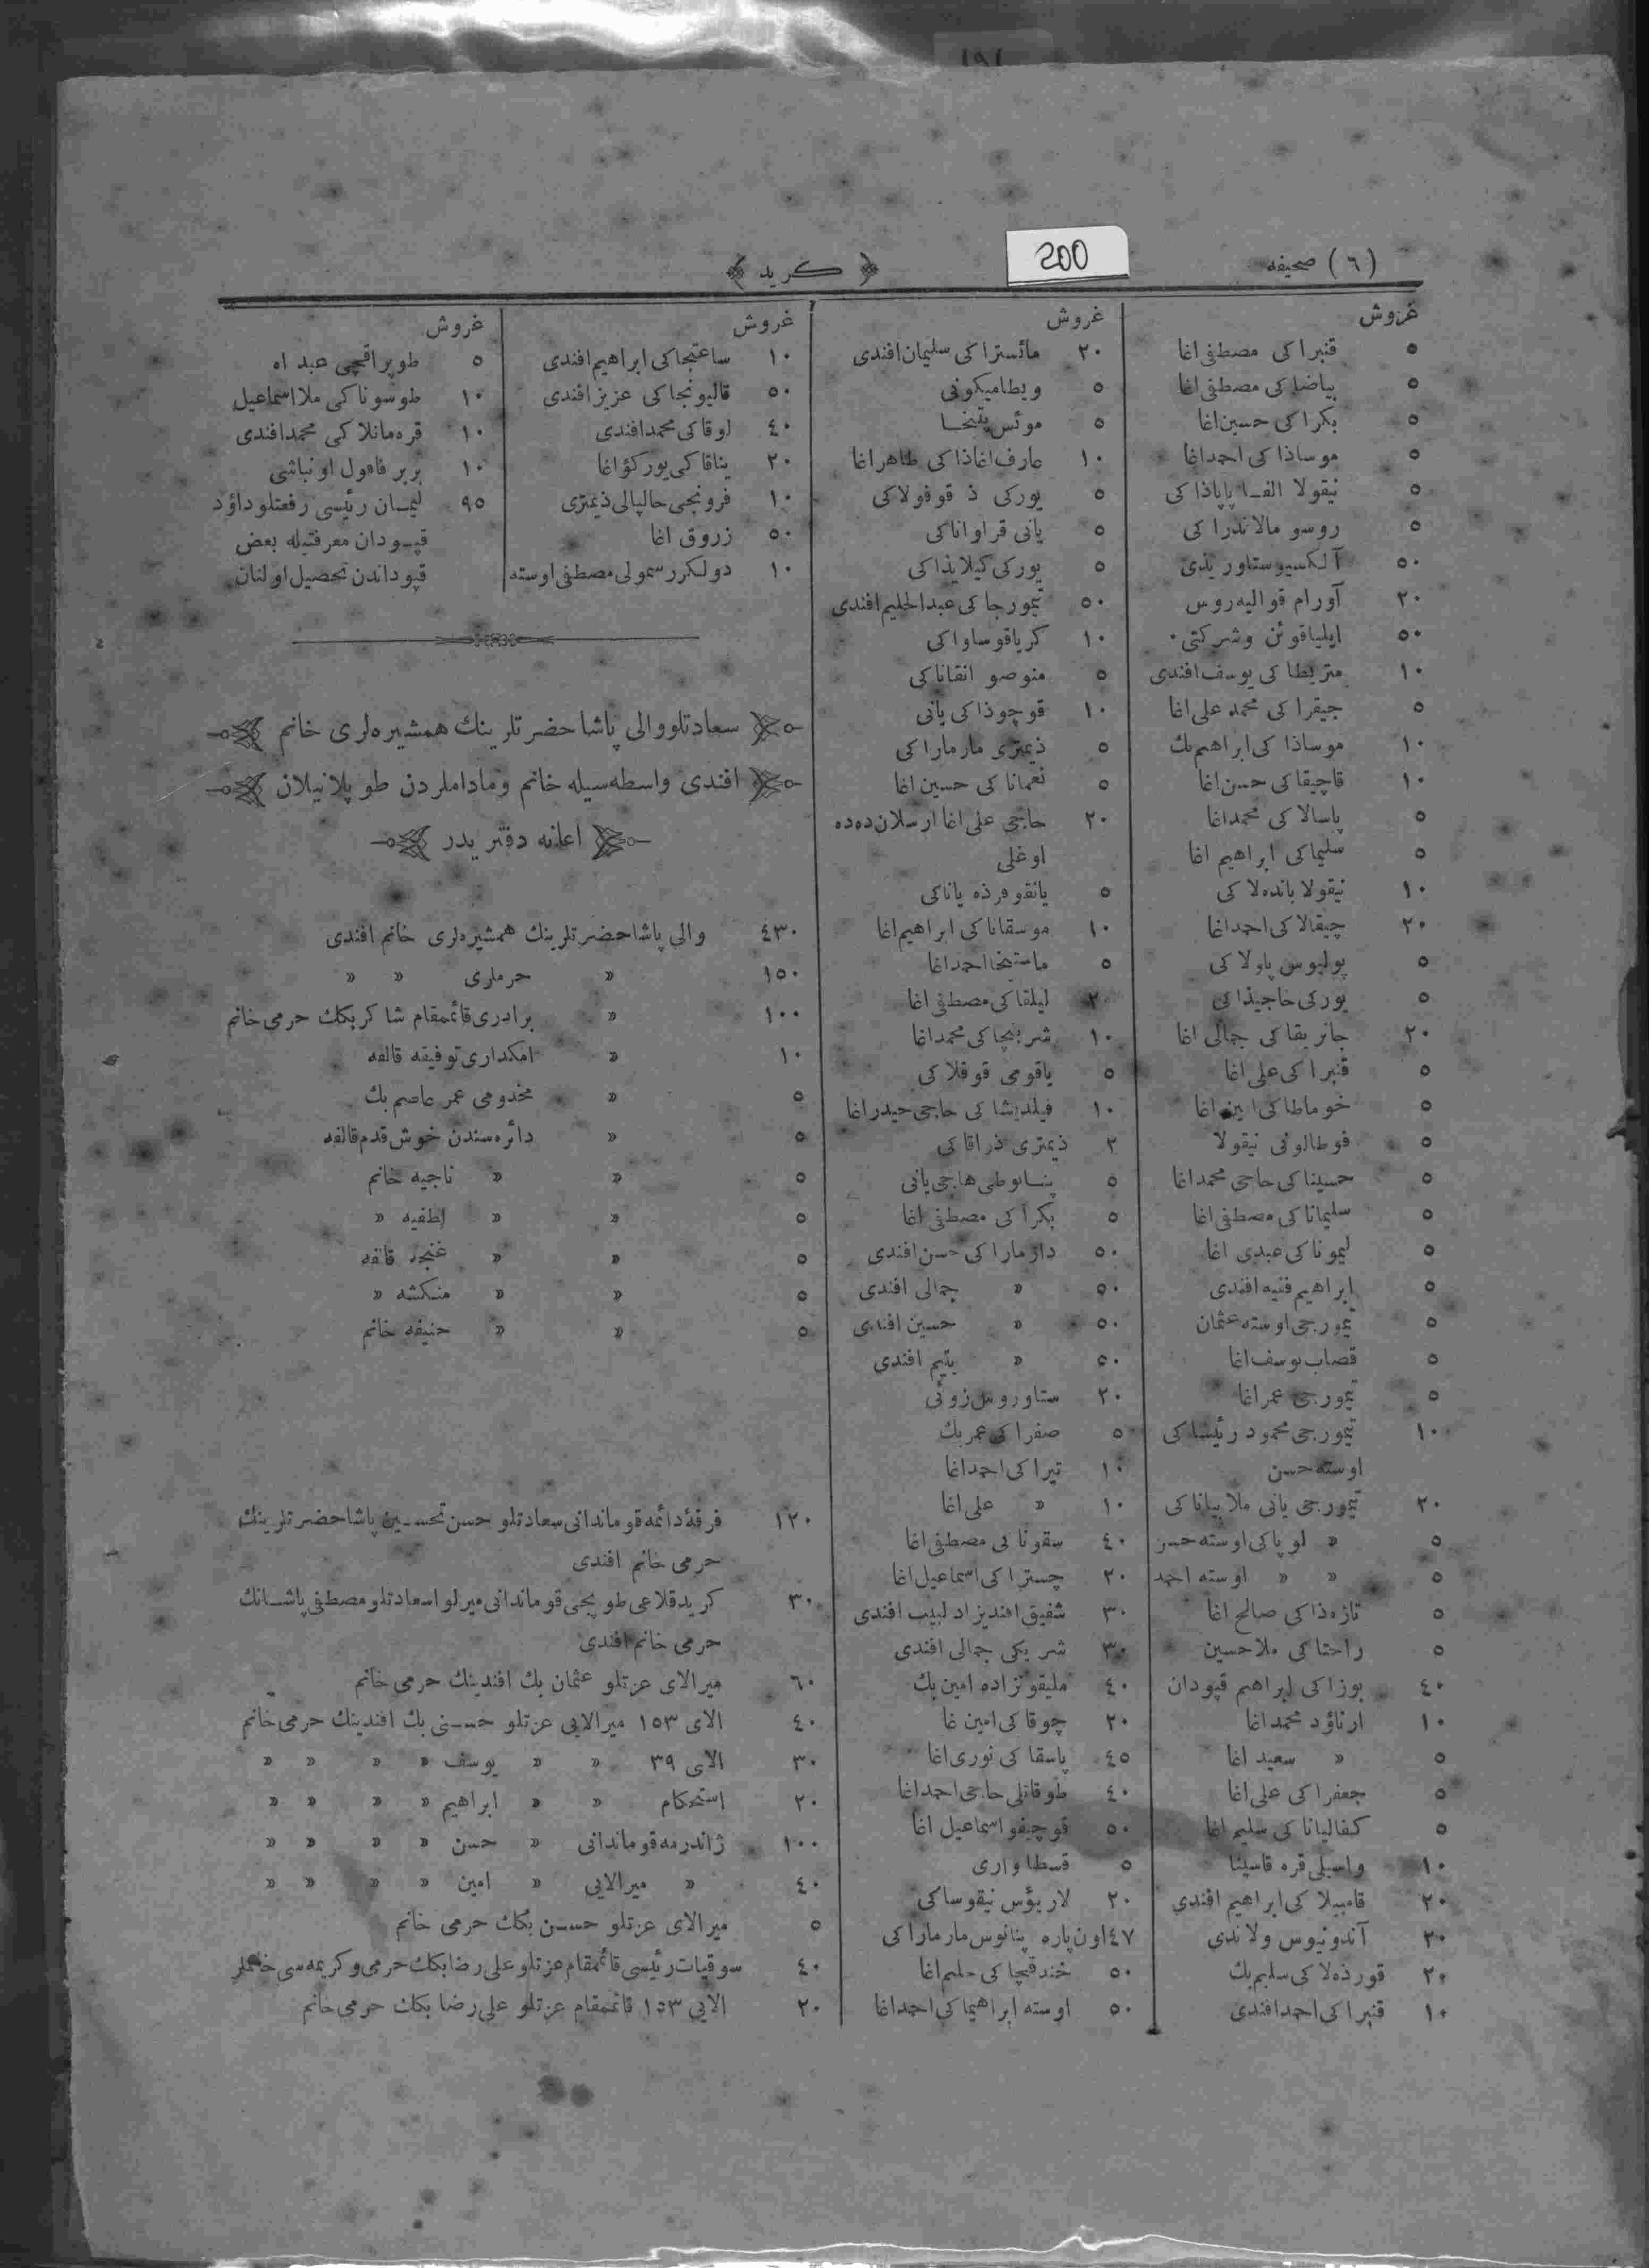 200
صحیفه (٦)
﴿ كرید ﴾
غروش
٥ قنبراكی مصطفی اغا
٥ بیاضاكی مصطفی اغا
٥ بكراكی حسین اغا
٥ موساذاكی احمد اغا
٥ نیقولا الفـا پاپاذاكی
٥ روسو مالاندراكی
٥٠ آلكسیو ستاوریذی
٢٠ آورام قوالیه روس
٥٠ ایلیاقوئن وشركتی
١٠ متریطاكی یوسف افندی
٥ جیفراكی محمد علی اغا
١٠ موساذا كی ابراهیم بك
١٠ قاچیقاكی حسن اغا
٥ پاسالاكی محمد اغا
٥ سلیماكی ابراهیم اغا
١٠ نیقولا بانده لاكی
٢٠ چیقالاكی احمد اغا
٥ پولیوس پاولاكی
٥ یوركی خاجیذاكی
٢٠ جانریقاكی جمالی اغا
٥ قنبراكی علی اغا
٥ خوماطاكی امین اغا
٥ فوطالونی نیقولا
٥ حسیناكی حاجی محمد اغا
٥ سلیماناكی مصطفی اغا
٥ لیموناكی عبدی اغا
٥ ابراهیم فتیه افندی
٥ تیمورجی اوسته عثمان
٥ قصاب یوسف اغا
٥ تیمورجی عمر اغا
١٠ تیمورجی محمود رئیساكی
اوسته حسن
٢٠ تیمورجی یانی ملابیاناكی
٥ « لوپاكی اوسته حسن
٥ « « اوسته احمد
٥ تازه ذاكی صالح اغا
٥ راحتاكی ملا حسین
٤٠ بوزاكی ابراهیم قپودان
١٠ ارناؤد محمد اغا
٥ « سعید اغا
٥ جعفراكی علی اغا
٥ كفالیاناكی سلیم اغا
١٠ واسیلی قره قاسینا
٢٠ قامبیلاكی ابراهیم افندی
٢٠ آندونیوس ولاندی
٢٠ قورذه لاكی سلیم بك
١٠ قنبراكی احمد افندی
غروش
٢٠ مائستراكی سلیمان افندی
٥ ویطامیكونی
٥ موئس پتیخـا
١٠ عارف اغاذاكی طاهر اغا
٥ یوركی ذ قوفولاكی
٥ یانی قراواناكی
٥ یوركی كیلایذاكی
٥٠ تیمورجاكی عبدالحلیم افندی
١٠ كریاقو ساواكی
٥ منوصو انقاناكی
١٠ قوچوذاكی یانی
٥ ذیمتری مارماراكی
٥ نعماناكی حسین اغا
٢٠ حاجی علی اغا ارسلان ده ده
اوغلی
٥ یانقو ورذه یاناكی
١٠ موسقاناكی ابراهیم اغا
٥ ماستیخا احمد اغا
٢٠ لیلقاكی مصطفی اغا
١٠ شربنجاكی محمد اغا
٥ یاقومی قوقلاكی
١٠ فیلدیشاكی حاجی حیدر اغا
٢ ذیمتری ذراقاكی
٥ پنـایوطی هاجی یانی
٥ بكراكی مصطفی اغا
٥٠ دارماراكی حسن افندی
٥٠ « جمالی افندی
٥٠ « حسین افندی
٥٠ « یتیم افندی
٢٠ ستاوروس زوئی
٥ صفراكی عمر بك
١٠ تیراكی احمد اغا
١٠ « علی اغا
٤٠ سقوناكی مصطفی اغا
٢٠ چستراكی اسماعیل اغا
٣٠ شفیق افندیزاد لبیب افندی
٣٠ شریكی جمالی افندی
٤٠ ملیقونزاده امین بك
٢٠ چوقاكی امین غا
٤٥ پاسقاكی نوری اغا
٤٠ طوقانلی حاجی احمد اغا
٥٠ قوچیفو اسماعیل اغا
٥ قسطا واری
٢٠ لاریؤس نیقوساكی
٤٧ اون پاره پنانوس مارماراكی
٥٠ خندقیچاكی حلیم اغا
٥٠ اوسته ابراهیماكی احمد اغا
غروش
١٠ ساعتجاكی ابراهیم افندی
٥٠ قالیونجاكی عزیز افندی
٤٠ لوقاكی محمد افندی
٢٠ یناقاكی یوركؤ اغا
١٠ فرونجی حالپالی ذیمتری
٥٠ زروق اغا
١٠ دولكرر سمولی مصطفی اوسته
غروش
٥ طوپراقچی عبد اه
١٠ طوسوناكی ملا اسماعیل
١٠ قره مانلاكی محمد افندی
١٠ بربر قاول اونباشی
٩٥ لیمـان رئیسی رفعتلو داؤد
قپـودان معرفتیله بعض
قپوداندن تحصیل اولنان
سعادتلو والی پاشا حضرتلرینك همشیره لری خانم
افندی واسطه سیله خانم ومادامالردن طوپلانیلان
اعانه دفتریدر
٤٣٠ والی پاشا حضرتلرینك همشیره لری خانم افندی
١٥٠ « حرملری « «
١٠٠ « برادری قائممقام شاكر بكك حرمی خانم
١٠ « امكداری توفیقه قالفه
٥ « مخدومی عمر عاصم بك
٥ « دائره سندن خوش قدم قالفه
٥ « « ناجیه خانم
٥ « « لطفیه «
٥ « « غنچه قالفه
٥ « « منكشه «
٥ « « حنیفه خانم
١٢٠ فرقه دائمه قوماندانی سعادتلو حسن تحسـین پاشا حضرتلرینك
حرمی خانم افندی
٣٠ كرید قلاعی طوپجی قوماندانی میرلوا سعادتلو مصطفی پاشـانك
حرمی خانم افندی
٦٠ میرالای عزتلو عثمان بك افندینك حرمی خانم
٤٠ الای ١٥٣ میرالایی عزتلو حسـنی بك افندینك حرمی خانم
٣٠ الای ٣٩ « « یوسف « « « «
٢٠ استحكام « « ابراهیم « « « «
١٠٠ ژاندرمه قوماندانی « حسن « « « «
٤٠ « میرالایی « امین « « « «
٥ میرالای عزتلو حسـن بكك حرمی خانم
٤٠ سوقیات رئیسی قائممقام عزتلو علی رضا بكك حرمی وكریمه سی خانملر
٢٠ الایی ١٥٣ قائممقام عزتلو علی رضا بكك حرمی خانم